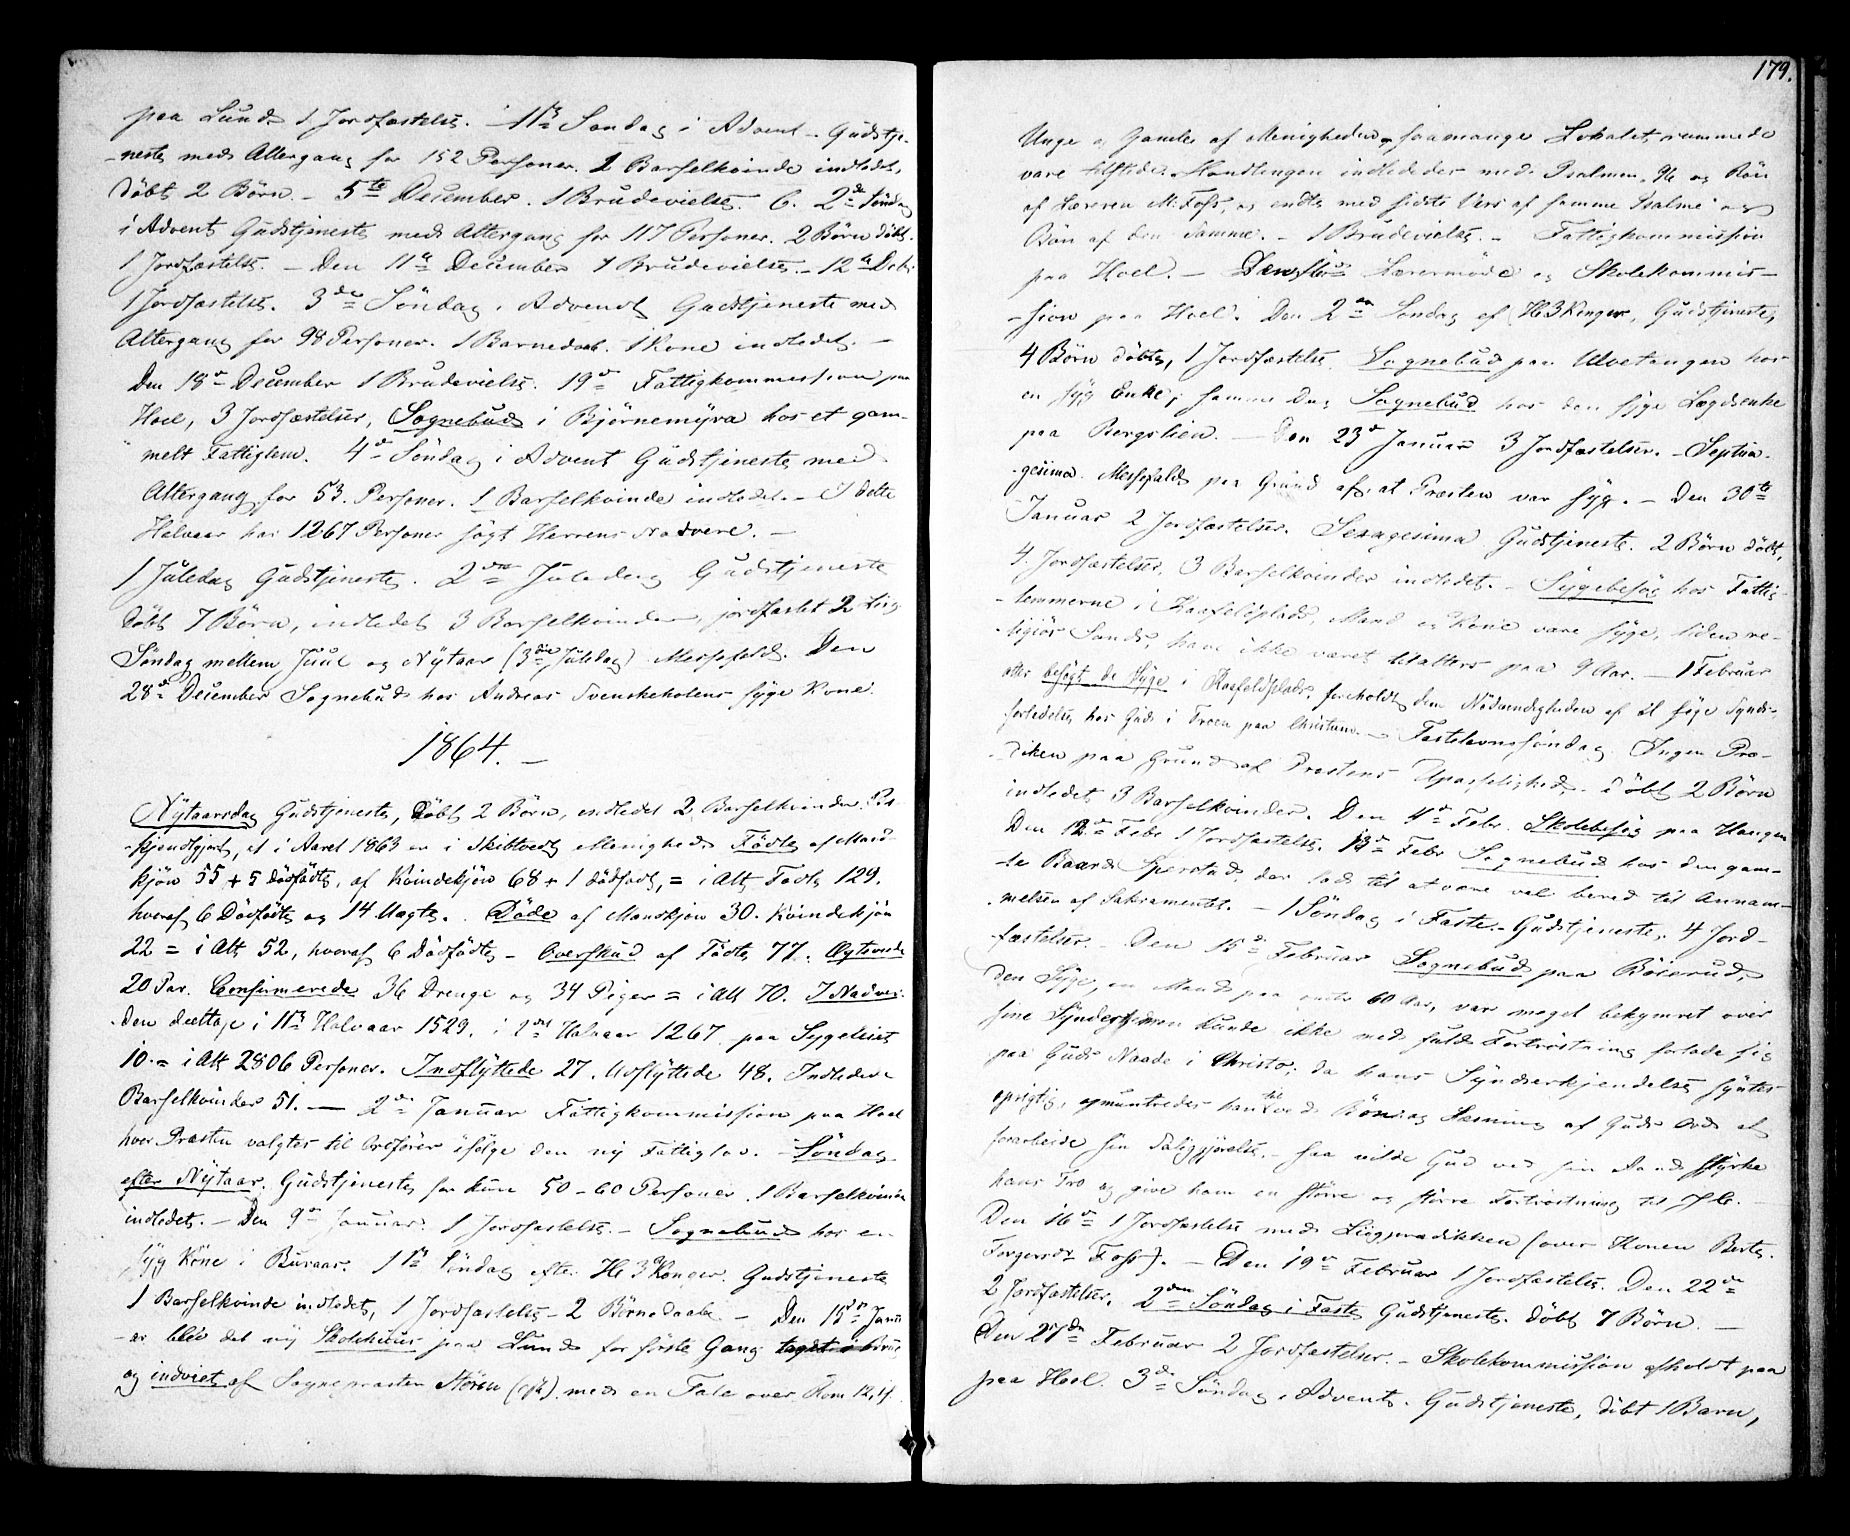 paa Lund 1 Jordfæstelse. – 1ste Søndag i Advent – Gudstje-
-neste med Altergang for 152 Personer. 2 Barselkvinder indledet,
døbt 2 Børn. – 5te December. 1 Brudevielse. 6. 2den Søndag
i Advent Gudstjeneste med Altergang for 117 Personer. 2 Børn døbt.
1 Jordfæstelse. – Den 11te December 1 Brudevielse. – 12te Decbr
1 Jordfæstelse. 3die Søndag i Advent Gudstjeneste med
Altergang for 98 Personer. 1 Barnedaab. 1 Kone indledet. –
Den 18de December 1 Brudevielse. 19de Fattigkommission paa
Hoel, 3 Jordfæstelser, Sognebud i Bjørnemyra hos et gam-
melt Fattiglem. 4de Søndag i Advent Gudstjeneste med
Altergang for 53 Personer. 1 Barselkvinde indledet. – I dette
Halvaar har 1267 Personer søgt Herrens Nadvere. –
1 Juledag Gudstjeneste. 2den Juledag Gudstjeneste
døbt 7 Børn, indledet 3 Barselkvinder, jordfæstet 2 Lig
Søndag mellem Juul og Nytaar (3die Juledag) Messefald. Den
28de December Sognebud hos Andreas Svenskeholens syge Kone.
1864. –
Nytaarsdag Gudstjeneste, Døbt 2 Børn, indledet 2 Barselkvinder.
-kjendtgjort, at i Aaret 1863 er i Skibtvedt Menighed Fødte af Mand-
kjøn 55 + 5 dødfødte, af Kvindekjøn 68 + 1 dødfødt, = i Alt Fødte 129.
hvoraf 6 Dødfødte og 14 Uægte. Døde af Mandkjøn 30. Kvindekjøn
22 = i Alt 52, hvoraf 6 Dødfødte – Overskud af Fødte 77. Ægteviede
20 Par. Confirmerede 36 Drenge og 34 Piger = i Alt 70. I Nadve-
den deeltoge i 1ste Halvaar 1529, i 2det Halvaar 1267, paa Sygeleiet
10. = i Alt 2806 Personer. Indflyttede 27. Udflyttede 48. Indledede
Barselkvinder 51. – 2den Januar Fattigkommission paa Hoel
hvor Præsten valgtes til Ordfører ifølge den ny Fattiglov. – Søndag
efter Nytaar. Gudstjeneste for kun 50–60 Personer. 1 Barselkvinde
indledet. – Den 9de Januar. 1 Jordfæstelse. – Sognebud hos en
syg Kone i Buraas. 1ste Søndag efter He 3 Konger. Gudstjeneste
1 Barselkvinde indledet, 1 Jordfæstelse – 2 Børnedaabe – Den 15de Janu
-ar blev det ny Skolehuus paa Lund for første Gang taget i brug
og indviet af Sognepræsten Støren med en Tale over Rom 12, 11.
179.
Unge og Gamle af Menigheden, saamange Lokalet rummede
vare tilstede. Handlingen indlededes med Psalmen 96 og Bøn
af Læreren M. Foss, og endte med sidste Vers af samme Psalme og
Bøn af den Samme. – 1 Brudevielse. – Fattigkommission
paa Hoel. – Lærermøde og Skolekommis-
-sion paa Hoel. Den 2den Søndag af He 3 Konger, Gudstjeneste,
4 Børn døbte, 1 Jordfæstelse. Sognebud paa Ulvetangen hos
en syg Enke; samme Dag Sognebud hos den syge Lægdsenke
paa Bergslien. – Den 23de Januar 3 Jordfæstelser. – Septua-
-gesima. Messefald paa Grund af, at Præsten var syg. – Den 30te
Januar 2 Jordfæstelser. Sexagesima Gudstjeneste. 2 Børn døbt,
4 Jordfæstelser, 3 Barselkvinder indledet. – Sygebesøg hos Fattig-
-lemmerne i Plads, Mand og Kone vare syge, siden re-
-ligiøs Sands, have ikke været til alters paa 9 Aar. – 1 Februar
atter besøgt de Syge i Plads, foreholdt dem Nødvendigheden af at søge Synds-
forladelse hos Gud i Troen paa Christum. – Fastelavnssøndag. Ingen Præ-
-diken paa Grund af Præstens Upasselighed. Døbt 2 Børn
indledet 3 Barselkvinder. Den 4de Febr. Skolebesøg paa Haugen
Den 12de Febr 1 Jordfæstelse. 13de Febr Sognebud hos den gam-
-le Baard Sperstad, der lod til at være vel bered til Annam-
-melsen af Sakramentet. – 1 Søndag i Faste. – Gudstjeneste. 4 Jord-
fæstelser. – Den 15de Februar Sognebud paa Bøierud,
den Syge, en Mand paa 60 Aar, var meget bekymret over
sine Synder, men kunde ikke med fuld Fortrøstning forlade sig
paa Guds Naade i Christo; da hans Syndserkjendelse syntes
oprigtig, opmuntredes han til ved Bøn og Læsning af Guds Ord at
forarbeide sin Saliggjørelse, – saa vilde Gud ved sin Aand styrke
hans Tro og give ham en større og større Fortrøstning til J. C. –
Den 16de 1 Jordfæstelse med Ligprædikken (over Konen Berte
Torgersdr Foss). – Den 19de Februar 1 Jordfæstelse. Den 22de
2 Jordfæstelser. 2den Søndag i Faste Gudstjeneste. døbt 7 Børn. –
Den 27de Februar 2 Jordfæstelser. – Skolekommission afholdt paa
paa Hoel. 3die Søndag i Advent. Gudstjeneste, døbt 1 Barn,